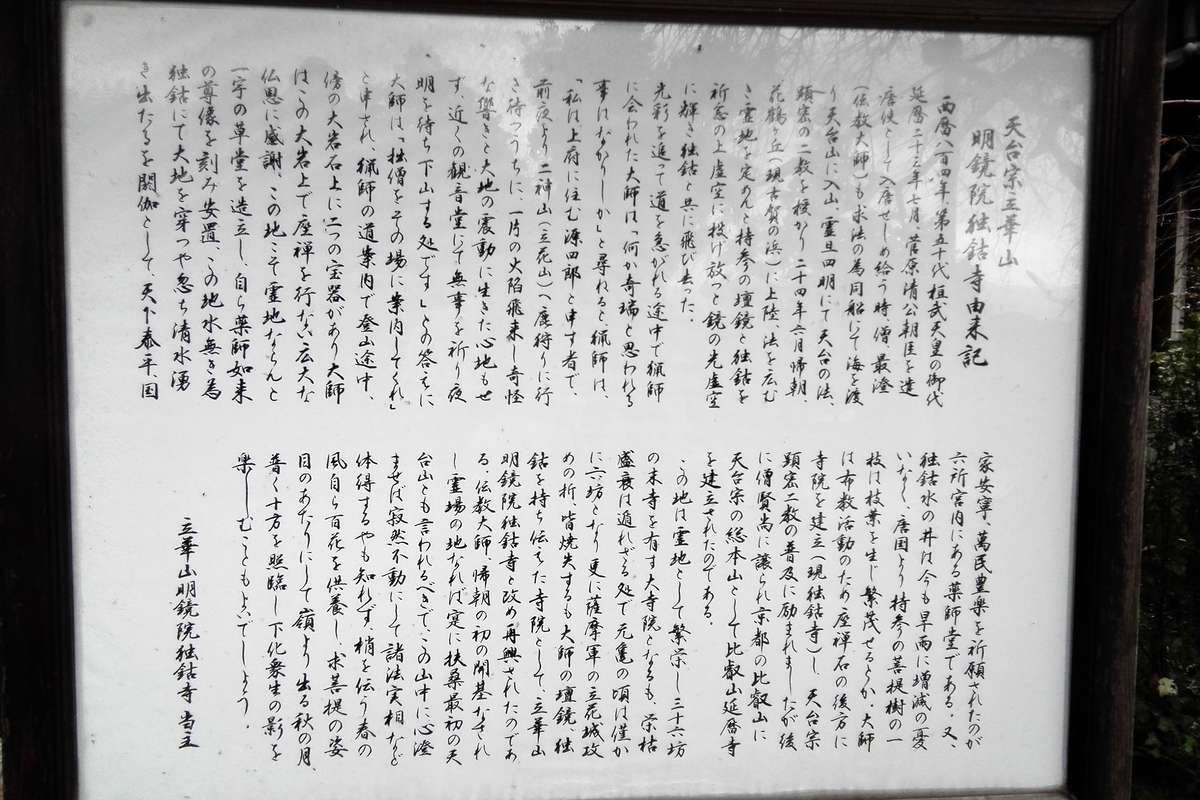 天台宗立華山
明鏡院独鈷寺由来記
西暦八百四年、第五十代桓武天皇の御代
延暦二十三年七月、菅原清公朝臣を遣
唐使として入唐せしめ給う時僧最澄
(伝教大師)も求法の為同船にて海を渡
り天台山に入山、霊旦四明にて天台の法、
顕密の二教を授かり二十四年六月帰朝、
花鶴ヶ丘(現古賀の浜)に上陸、法を広む
き霊地を定めんと持参の壇鏡と独鈷を
祈念の上虚空に投げ放つと鏡の光虚空
に輝き独鈷と共に飛び去った。
光彩を追って道を急がれる途中で猟師
に会われた大師は「何か奇瑞と思われる
事はなかりしか」と尋ねると猟師は、
「私は上府に住む源四郎と申す者で、
前夜より二神山(立花山)へ鹿狩りに行
き待つうちに、一片の火焔飛来し奇怪
な響きと大地の震動に生きた心地もせ
ず、近くの観音堂にて無事を祈り夜
明を待ち下山する処です」との答えに
大師は「拙僧をその場に案内してくれ」
と申され、猟師の道案内で登山途中、
傍の大岩石上に二つの宝器があり大師
はこの大岩上で座禅を行ない広大な
仏恩に感謝、この地こそ霊地ならんと
一宇の草堂を造立し、自ら薬師如来
の尊像を刻み安置、この地水無き為
独鈷にて大地を穿つや忽ち清水湧
き出たるを閼伽として天下泰平、国
家安寧、萬民豊楽を祈願されたのが
六所宮内にある薬師堂である。又、
独鈷水の井は今も旱雨に増減の憂
いなく、唐国より持参の菩提樹の一
枝は枝葉を生じ繁茂せるとか、大師
は布教活動のため座禅石の後方に
寺院を建立(現独鈷寺)し、天台宗
顕密二教の普及に励まれましたが後
に僧賢尚に譲られ京都の比叡山に
天台宗の総本山として比叡山延暦寺
を建立されたのである。
この地は霊地として繁栄し三十六坊
の末寺を有す大寺院となるも、栄枯
盛衰は遁れざる処で元亀の頃は僅か
に六坊となり更に薩摩軍の立花城攻
めの折、皆焼失するも大師の壇鏡、独
鈷を持ち伝えた寺院として、立華山
明鏡院独鈷寺と改め再興されたのであ
る。伝教大師、帰朝の初の開基なされ
し霊場の地なれば寔に扶桑最初の天
台山とも言われるべきで、この山中に心澄
ませば寂然不動にして諸法実相など
体得するやも知れず、梢を伝う春の
風自ら百花を供養し、求菩提の姿
目のあたりにして嶺より出る秋の月、
普く十方を照臨し下化衆生の影を
楽しむこともよいでしょう。
立華山明鏡院独鈷寺 当主